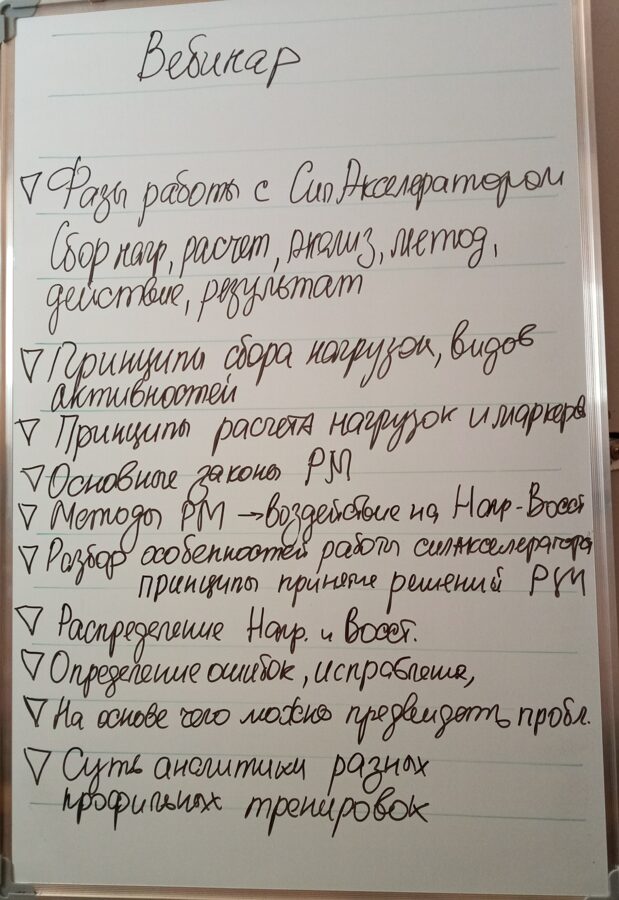 Вебинар
▽ Фазы работы с СилАкселератором
Сбор нагр, расчет, анализ, метод,
действие, результат
▽ Принципы сбора нагрузок, видов
активностей
▽ Принципы расчета нагрузок и маркеров
▽ Основные законы РМ
▽ Методы РМ → воздействие на Напр-Восст
▽ Разбор особенностей работы силакселератора
принципы принятие решений РМ
▽ Распределение Напр. и Восст.
▽ Определение ошибок, исправление,
▽ На основе чего можно предвидеть пробл.
▽ Суть аналитики разных
профильных тренировок